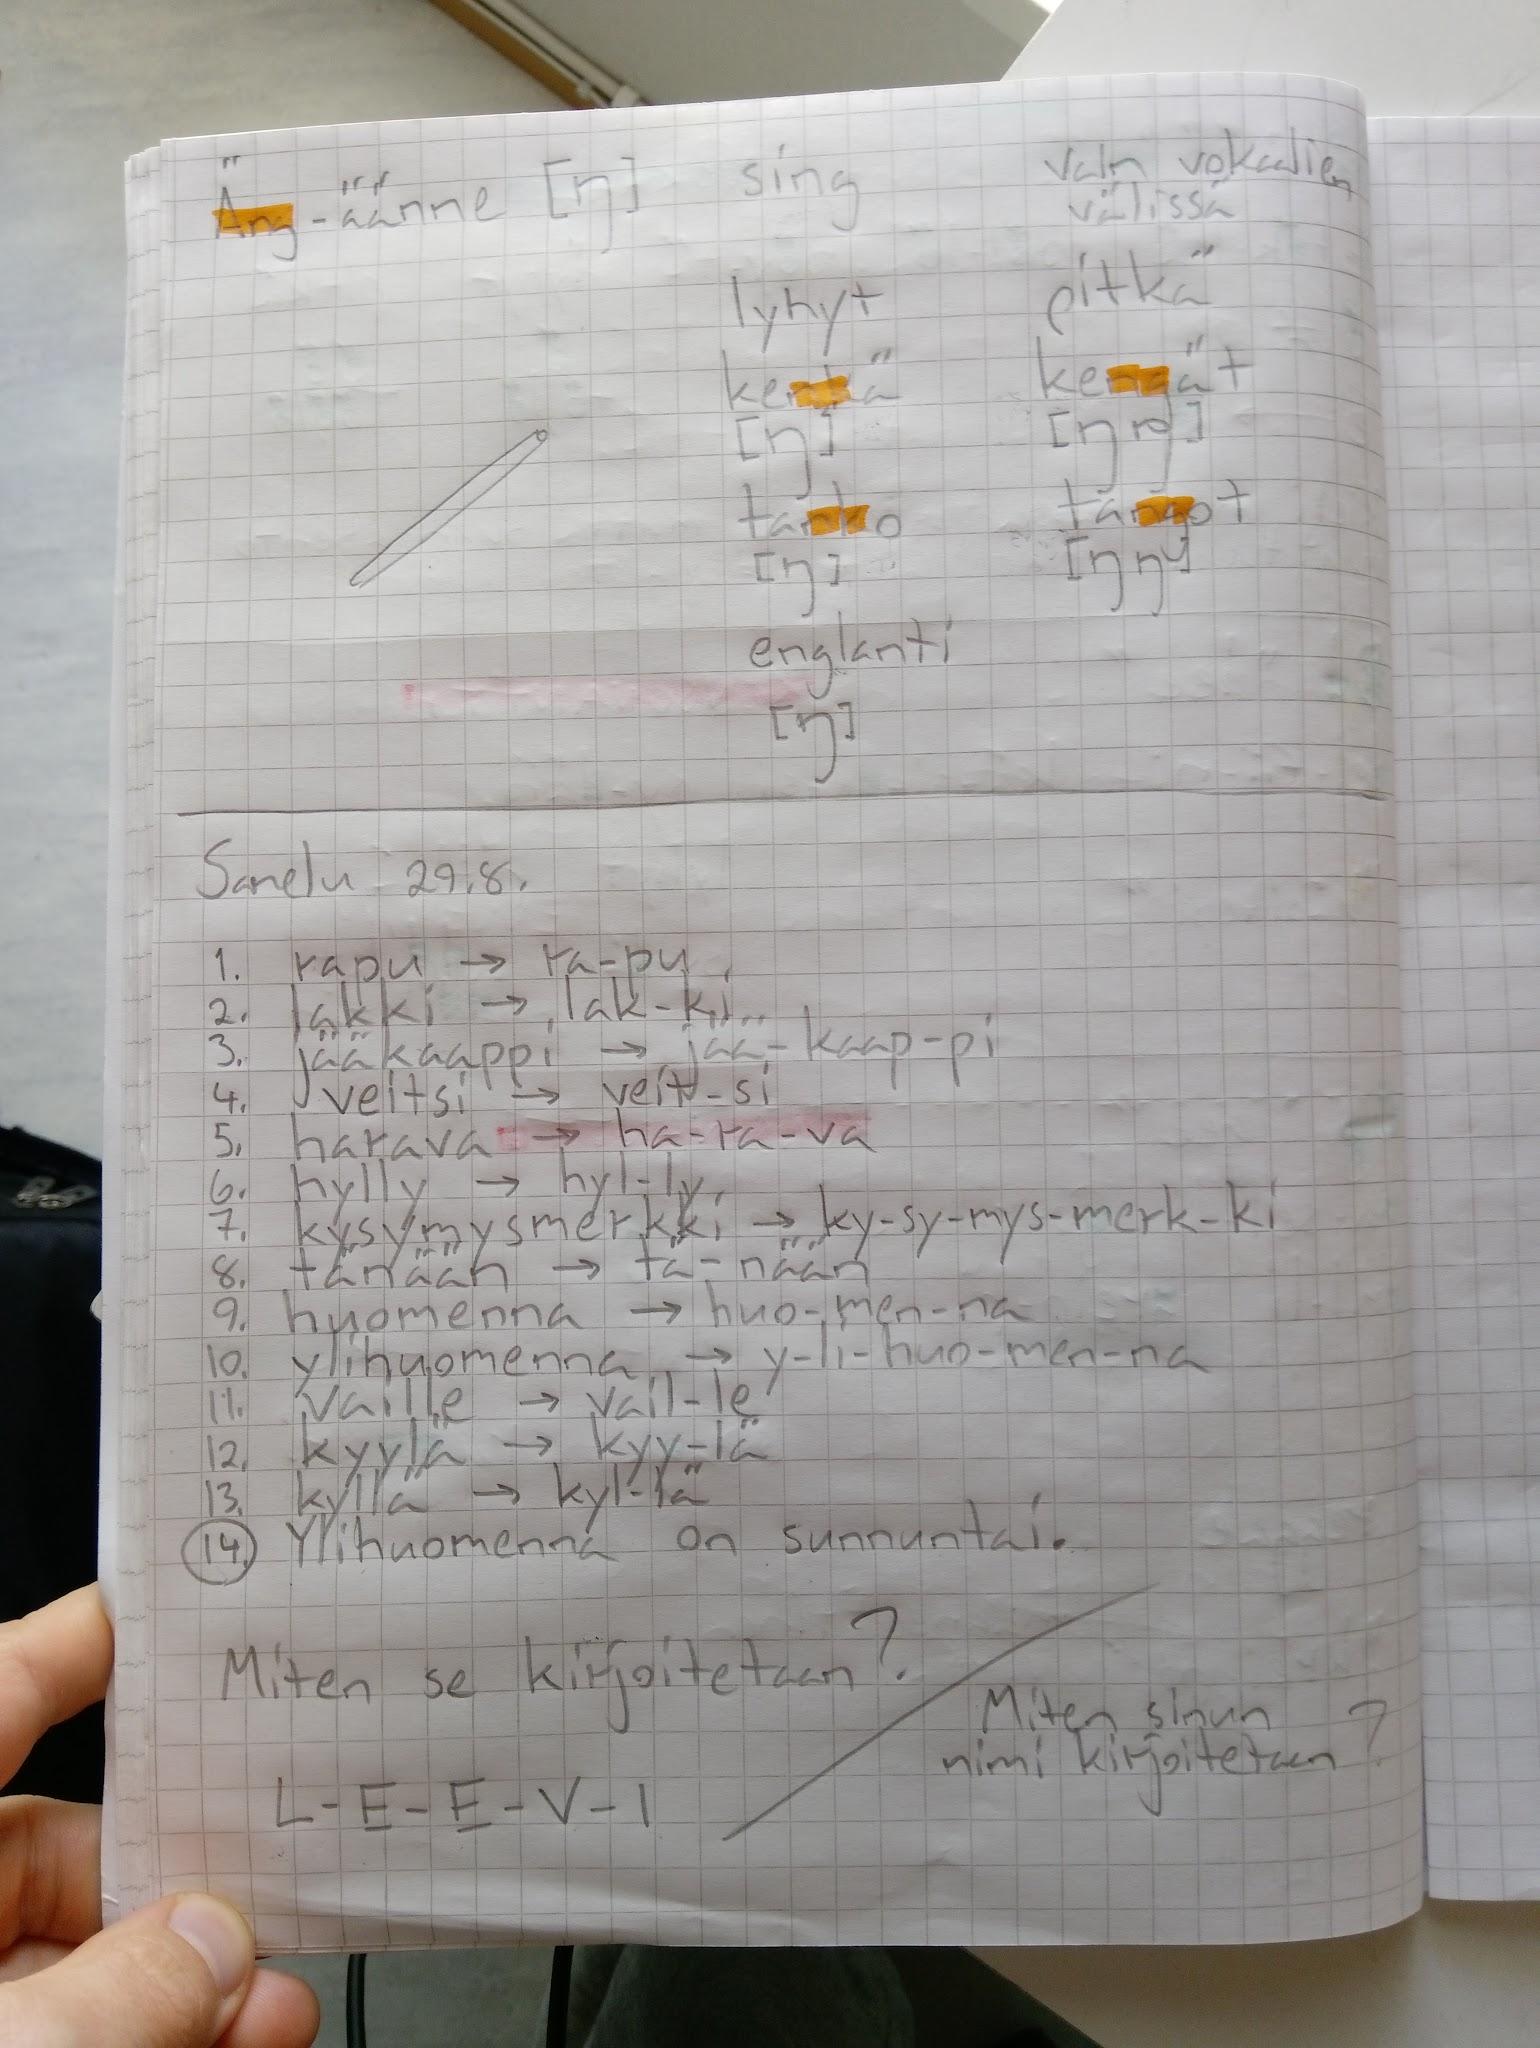 Äng-äänne [ŋ] sing
vain vokaalien
välissä
lyhyt pitkä
kenkä kengät
[ŋ] [ŋŋ]
tanko tangot
[ŋ] [ŋŋ]
englanti
[ŋ]
Sanelu 29.8.
1. rapu → ra-pu
2. lakki → lak-ki
3. jääkaappi → jää-kaap-pi
4. veitsi → veit-si
5. harava → ha-ra-va
6. hylly → hyl-ly
7. kysymysmerkki → ky-sy-mys-merk-ki
8. tänään → tä-nään
9. huomenna → huo-men-na
10. ylihuomenna → y-li-huo-men-na
11. vaille → vail-le
12. kyylä → kyy-lä
13. kyllä → kyl-lä
14. Ylihuomenna on sunnuntai.
Miten se kirjoitetaan?
Miten sinun
nimi kirjoitetaan?
L-E-E-V-I